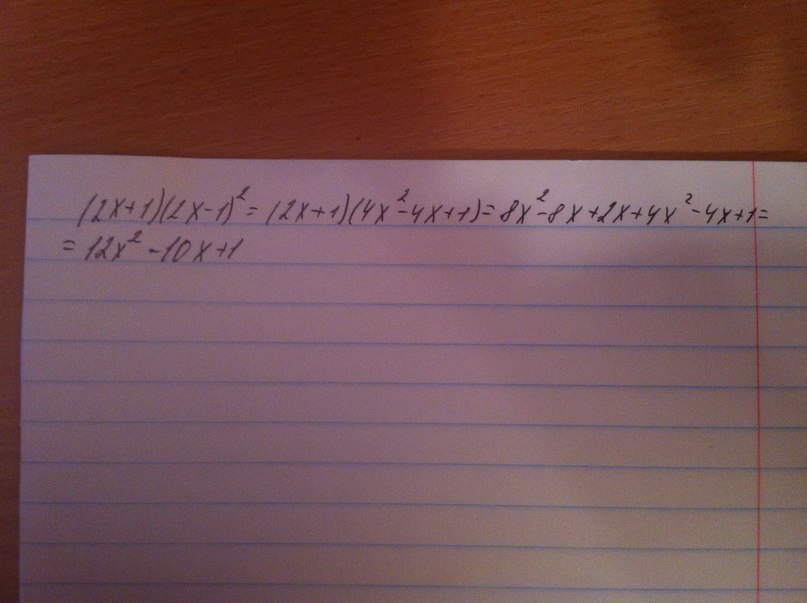 (2x+1)(2x-1)²= (2x+1)(4x²-4x+1)= 8x²-8x+2x+4x²-4x+1=
= 12x²-10x+1